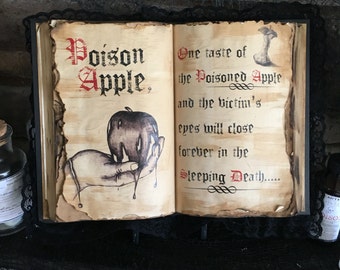 Poison
Apple,
One taste of
the Poisoned Apple
and the victim's
eyes will close
forever in the
Sleeping Death.....